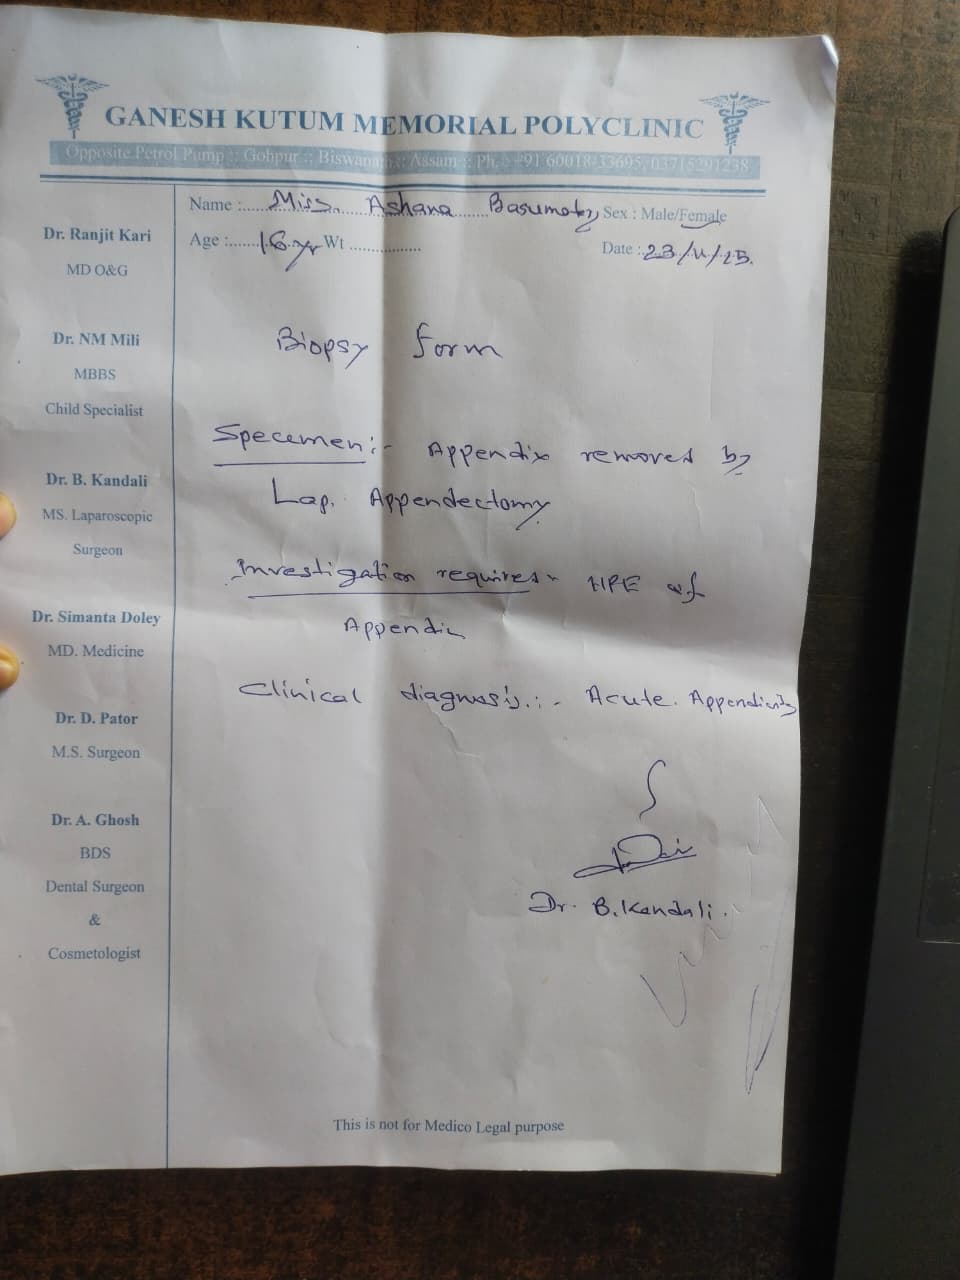 GANESH KUTUM MEMORIAL POLYCLINIC
Opposite Petrol Pump :: Gohpur :: Biswanath :: Assam :: Ph. : +91 60018-33695, 03715291238
Name :...... Miss. Ashana Basumatry Sex : Male/Female
Age :...... 16 yr Wt ................
Date : 23/11/25.
Dr. Ranjit Kari
MD O&G
Dr. NM Mili
MBBS
Child Specialist
Dr. B. Kandali
MS. Laparoscopic
Surgeon
Dr. Simanta Doley
MD. Medicine
Dr. D. Pator
M.S. Surgeon
Dr. A. Ghosh
BDS
Dental Surgeon
&
Cosmetologist
Biopsy form
Specemen :- Appendix removed by
Lap. Appendectomy
Investigation requires - HPE of
Appendix
Clinical diagnosis :- Acute. Appendicitis
Dr. B. Kandali.
This is not for Medico Legal purpose